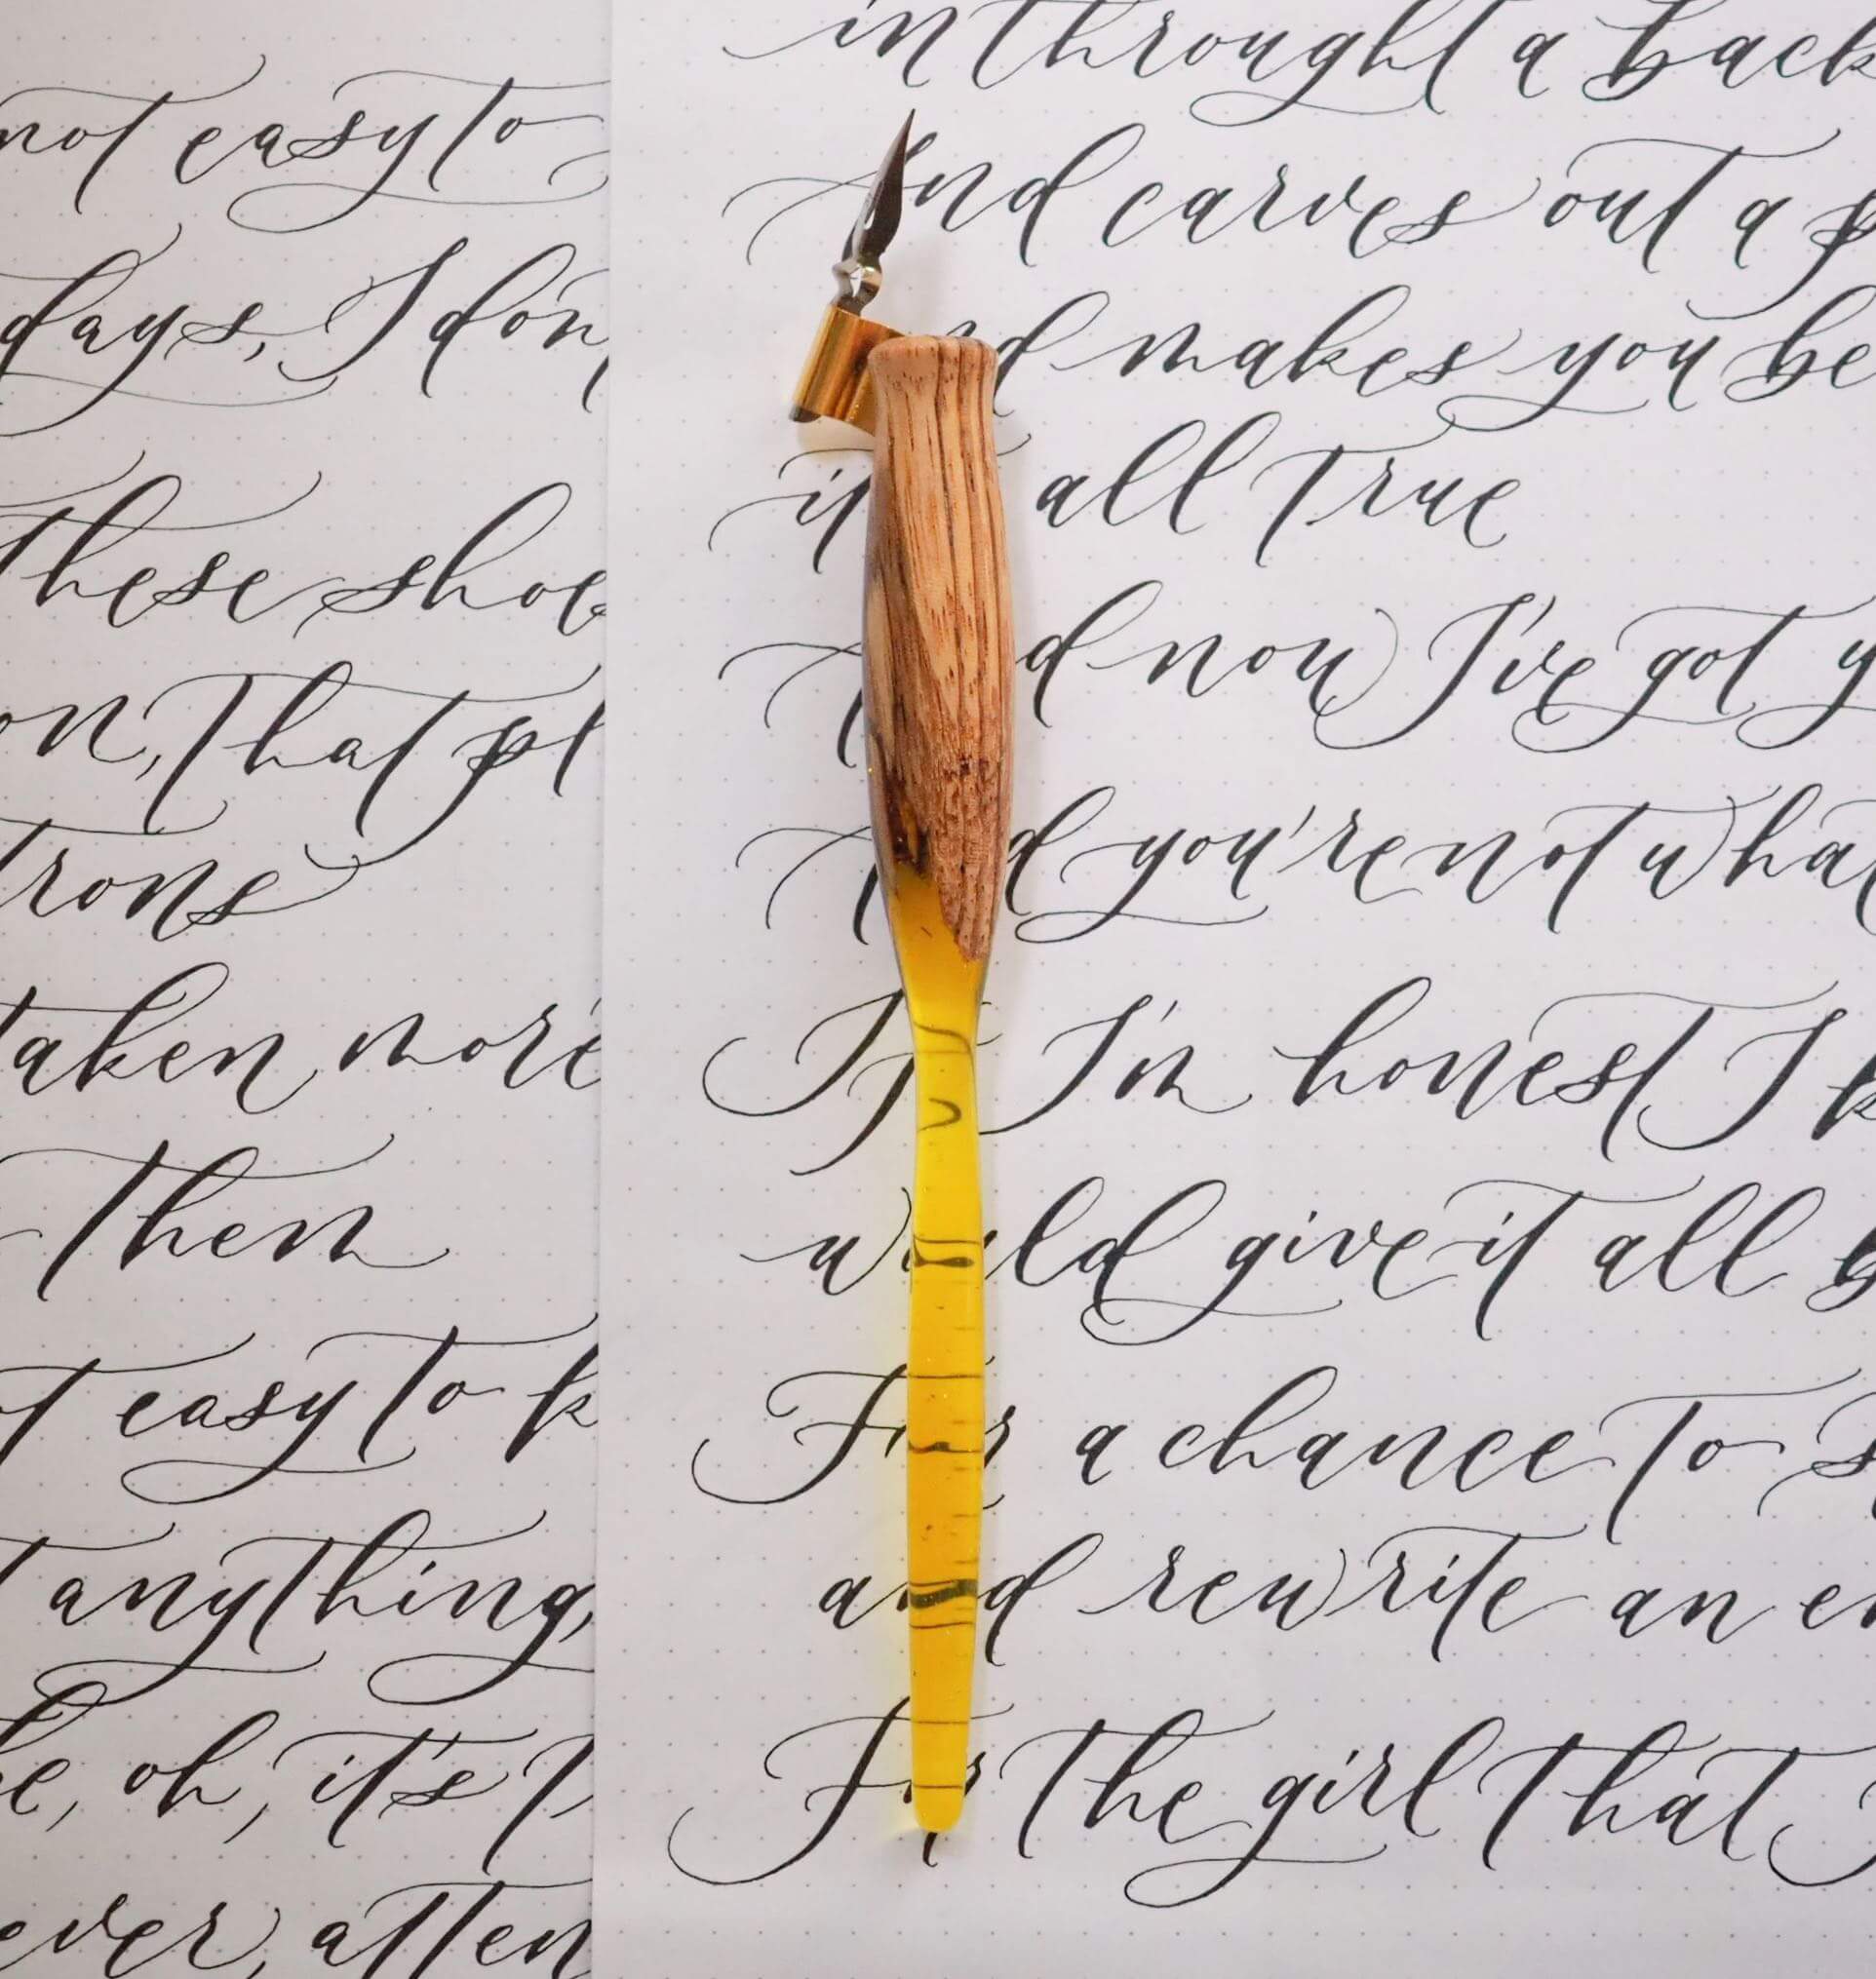 not easy to
days, I don
these shoe
on, that pl
trons
taken more
then
t easy to k
t anything,
be, oh, it's t
ever, atten
in throught a back
And carves out a p
And makes you be
it all true
And now I've got y
And you're not what
If I'm honest I k
would give it all b
For a chance to s
and rewrite an en
For the girl that I